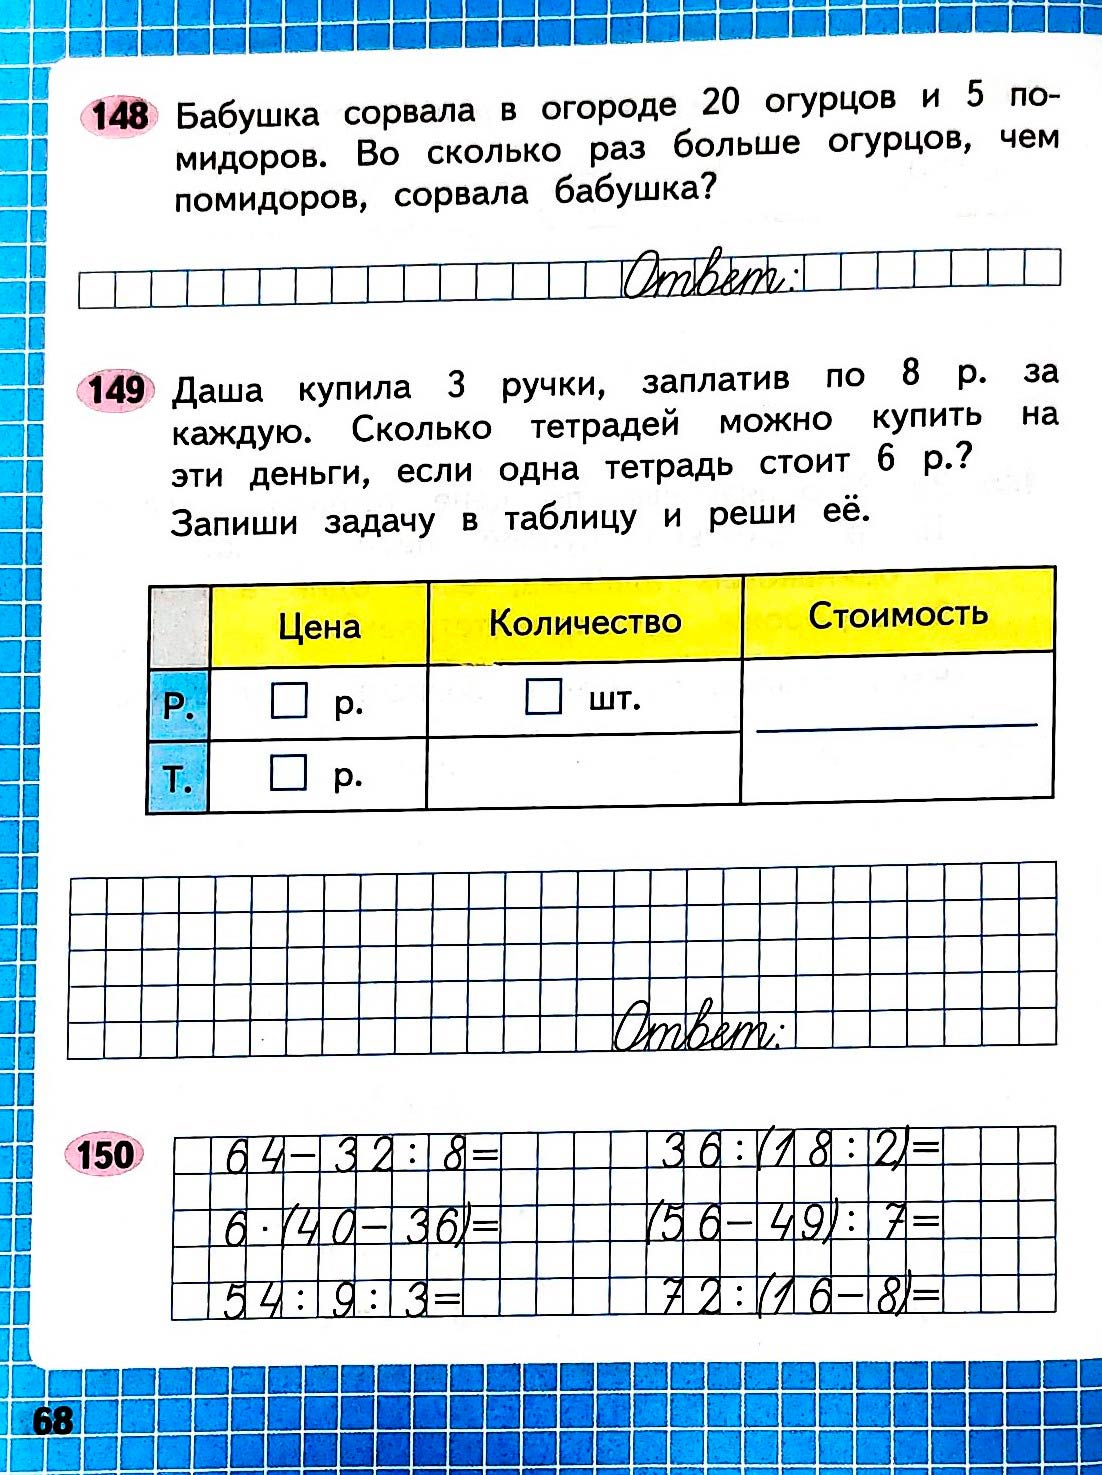 148 Бабушка сорвала в огороде 20 огурцов и 5 по-
мидоров. Во сколько раз больше огурцов, чем
помидоров, сорвала бабушка?
Ответ:
149 Даша купила 3 ручки, заплатив по 8 р. за
каждую. Сколько тетрадей можно купить на
эти деньги, если одна тетрадь стоит 6 р.?
Запиши задачу в таблицу и реши её.
Цена Количество Стоимость
Р. □ р. □ шт.
Т. □ р.
Ответ:
150 64-32:8= 36:(18:2)=
6·(40-36)= (56-49):7=
54:9:3= 72:(16-8)=
68